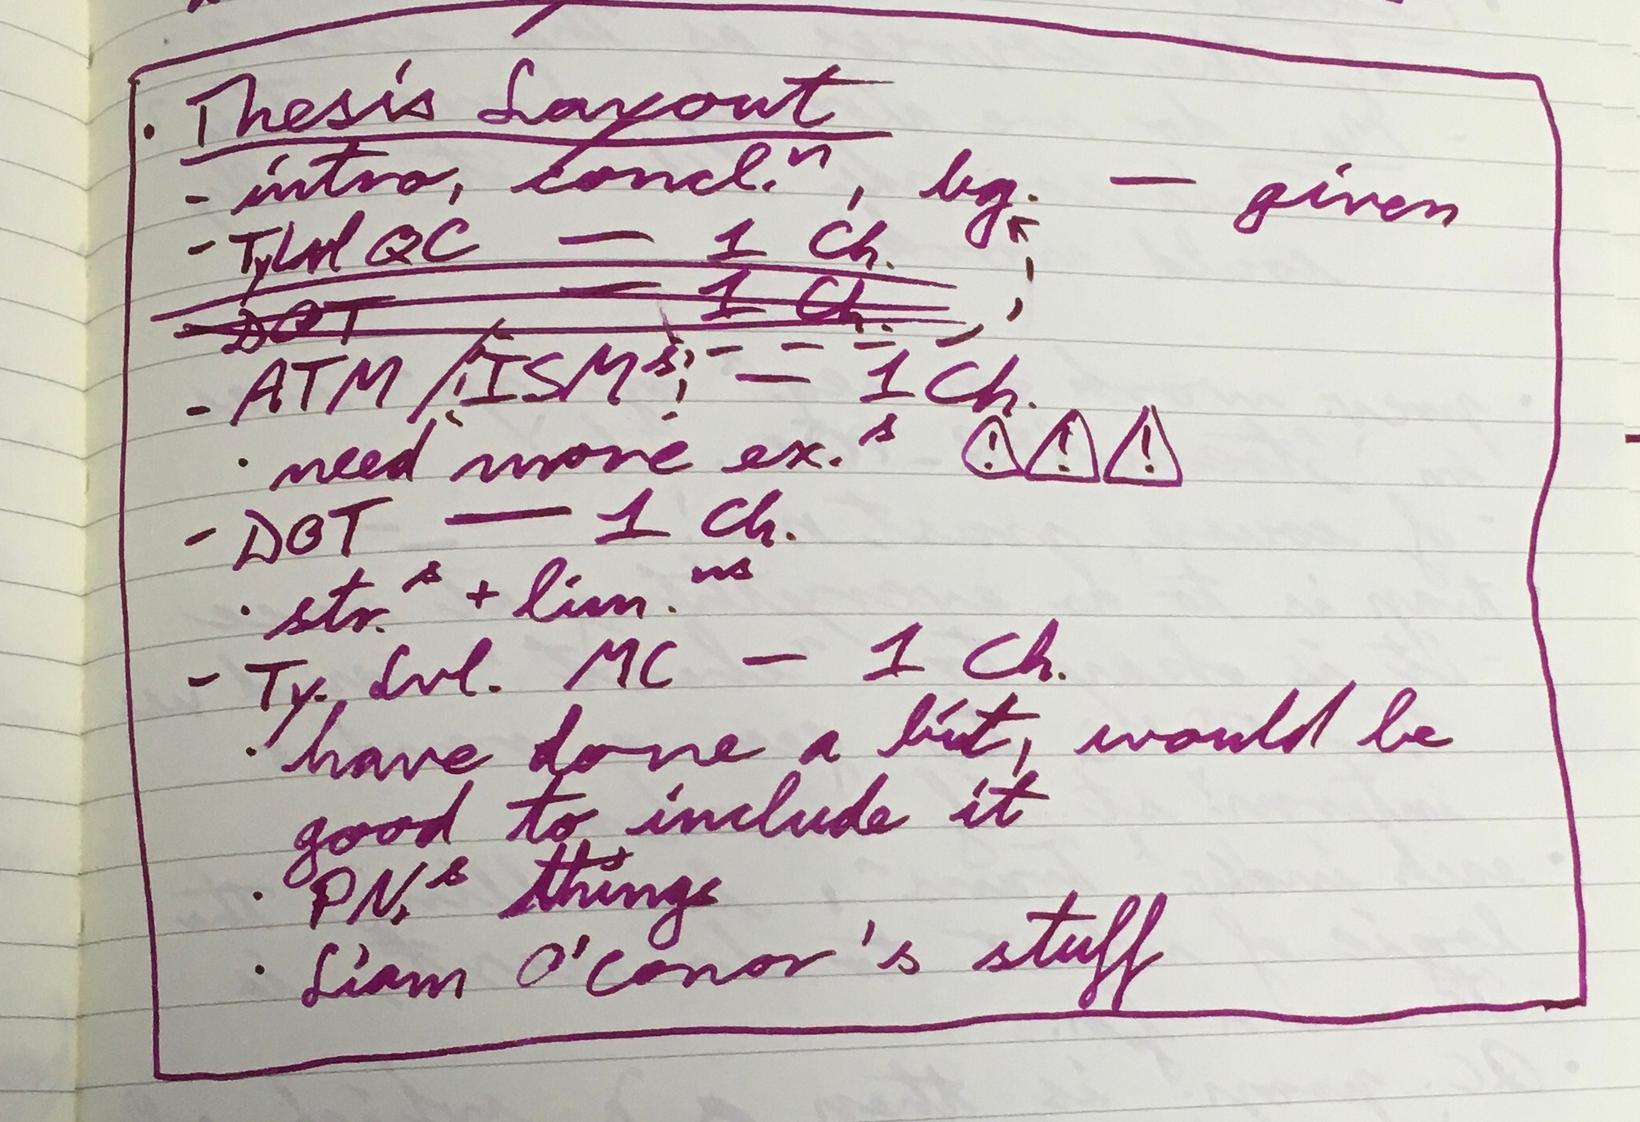 · Thesis Layout
- intro, concl.ⁿ, bg. — given
- TyLvl QC — 1 Ch.
- DOT — 1 Ch.
- ATM / ISMˢ — 1 Ch.
· need more ex.ˢ ⚠⚠⚠
- DOT — 1 Ch.
· str.ˢ + lim.ⁿˢ
- Ty. Lvl. MC — 1 Ch.
· have done a bit, would be
good to include it
· PN.ˢ things
· Liam O'Conor's stuff